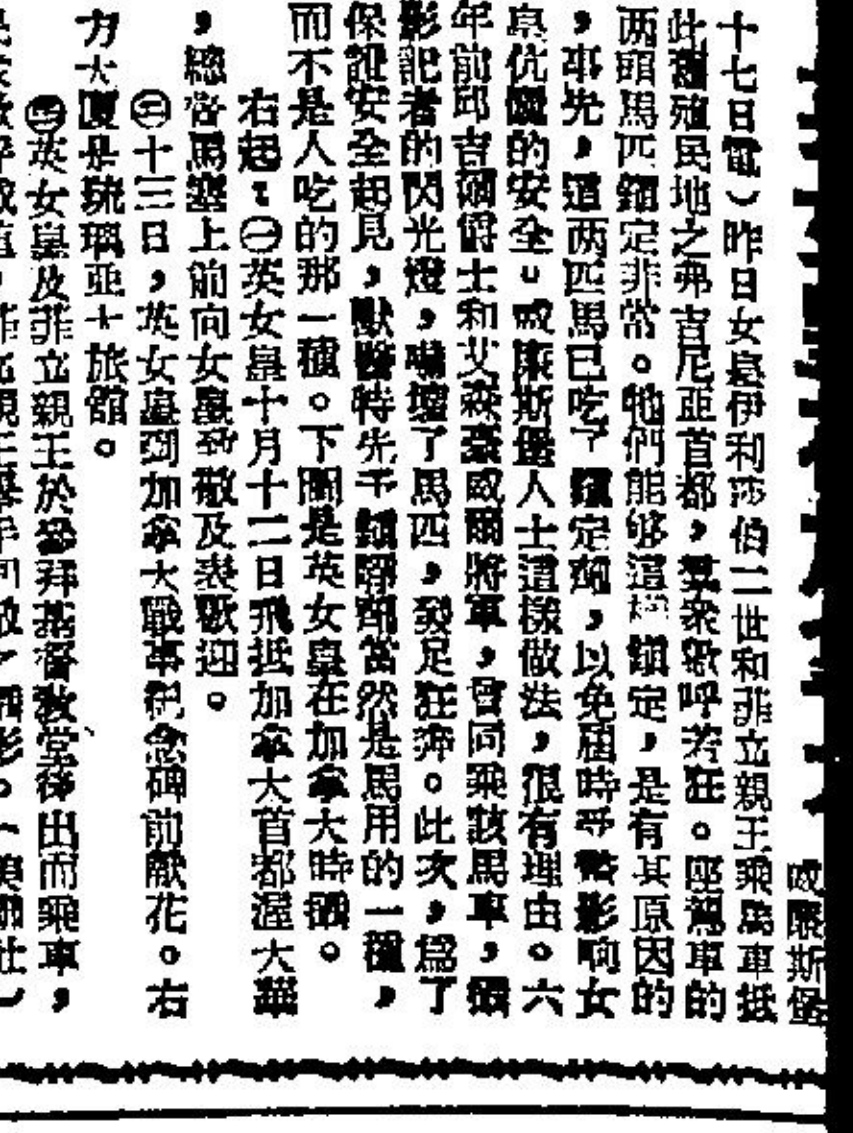 威廉斯堡
十七日電）昨日女皇伊利莎伯二世和菲立親王乘馬車抵
此種殖民地之弗吉尼亞首都，羣衆歡呼若狂。座駕車的
两頭馬匹鎮定非常。牠們能够這樣鎮定，是有其原因的
，事先，這两匹馬已吃了鎮定劑，以免屆時受驚影响女
皇伉儷的安全。威廉斯堡人士這樣做法，很有理由。六
年前邱吉爾爵士和艾森豪威爾將軍，曾同乘該馬車，攝
影記者的閃光燈，嚇壞了馬匹，發足狂奔。此次，爲了
保證安全起見，獸醫特先予鎮靜劑當然是馬用的一種，
而不是人吃的那一種。下圖是英女皇在加拿大時攝。
右起：㊀英女皇十月十二日飛抵加拿大首都渥大華
，總督馬塞上前向女皇致敬及表歡迎。
㊁十三日，英女皇到加拿大戰事紀念碑前獻花。右
方大厦是琉璃亞大旅館。
英女皇及菲立親王於參拜基督教堂後出而乘車，